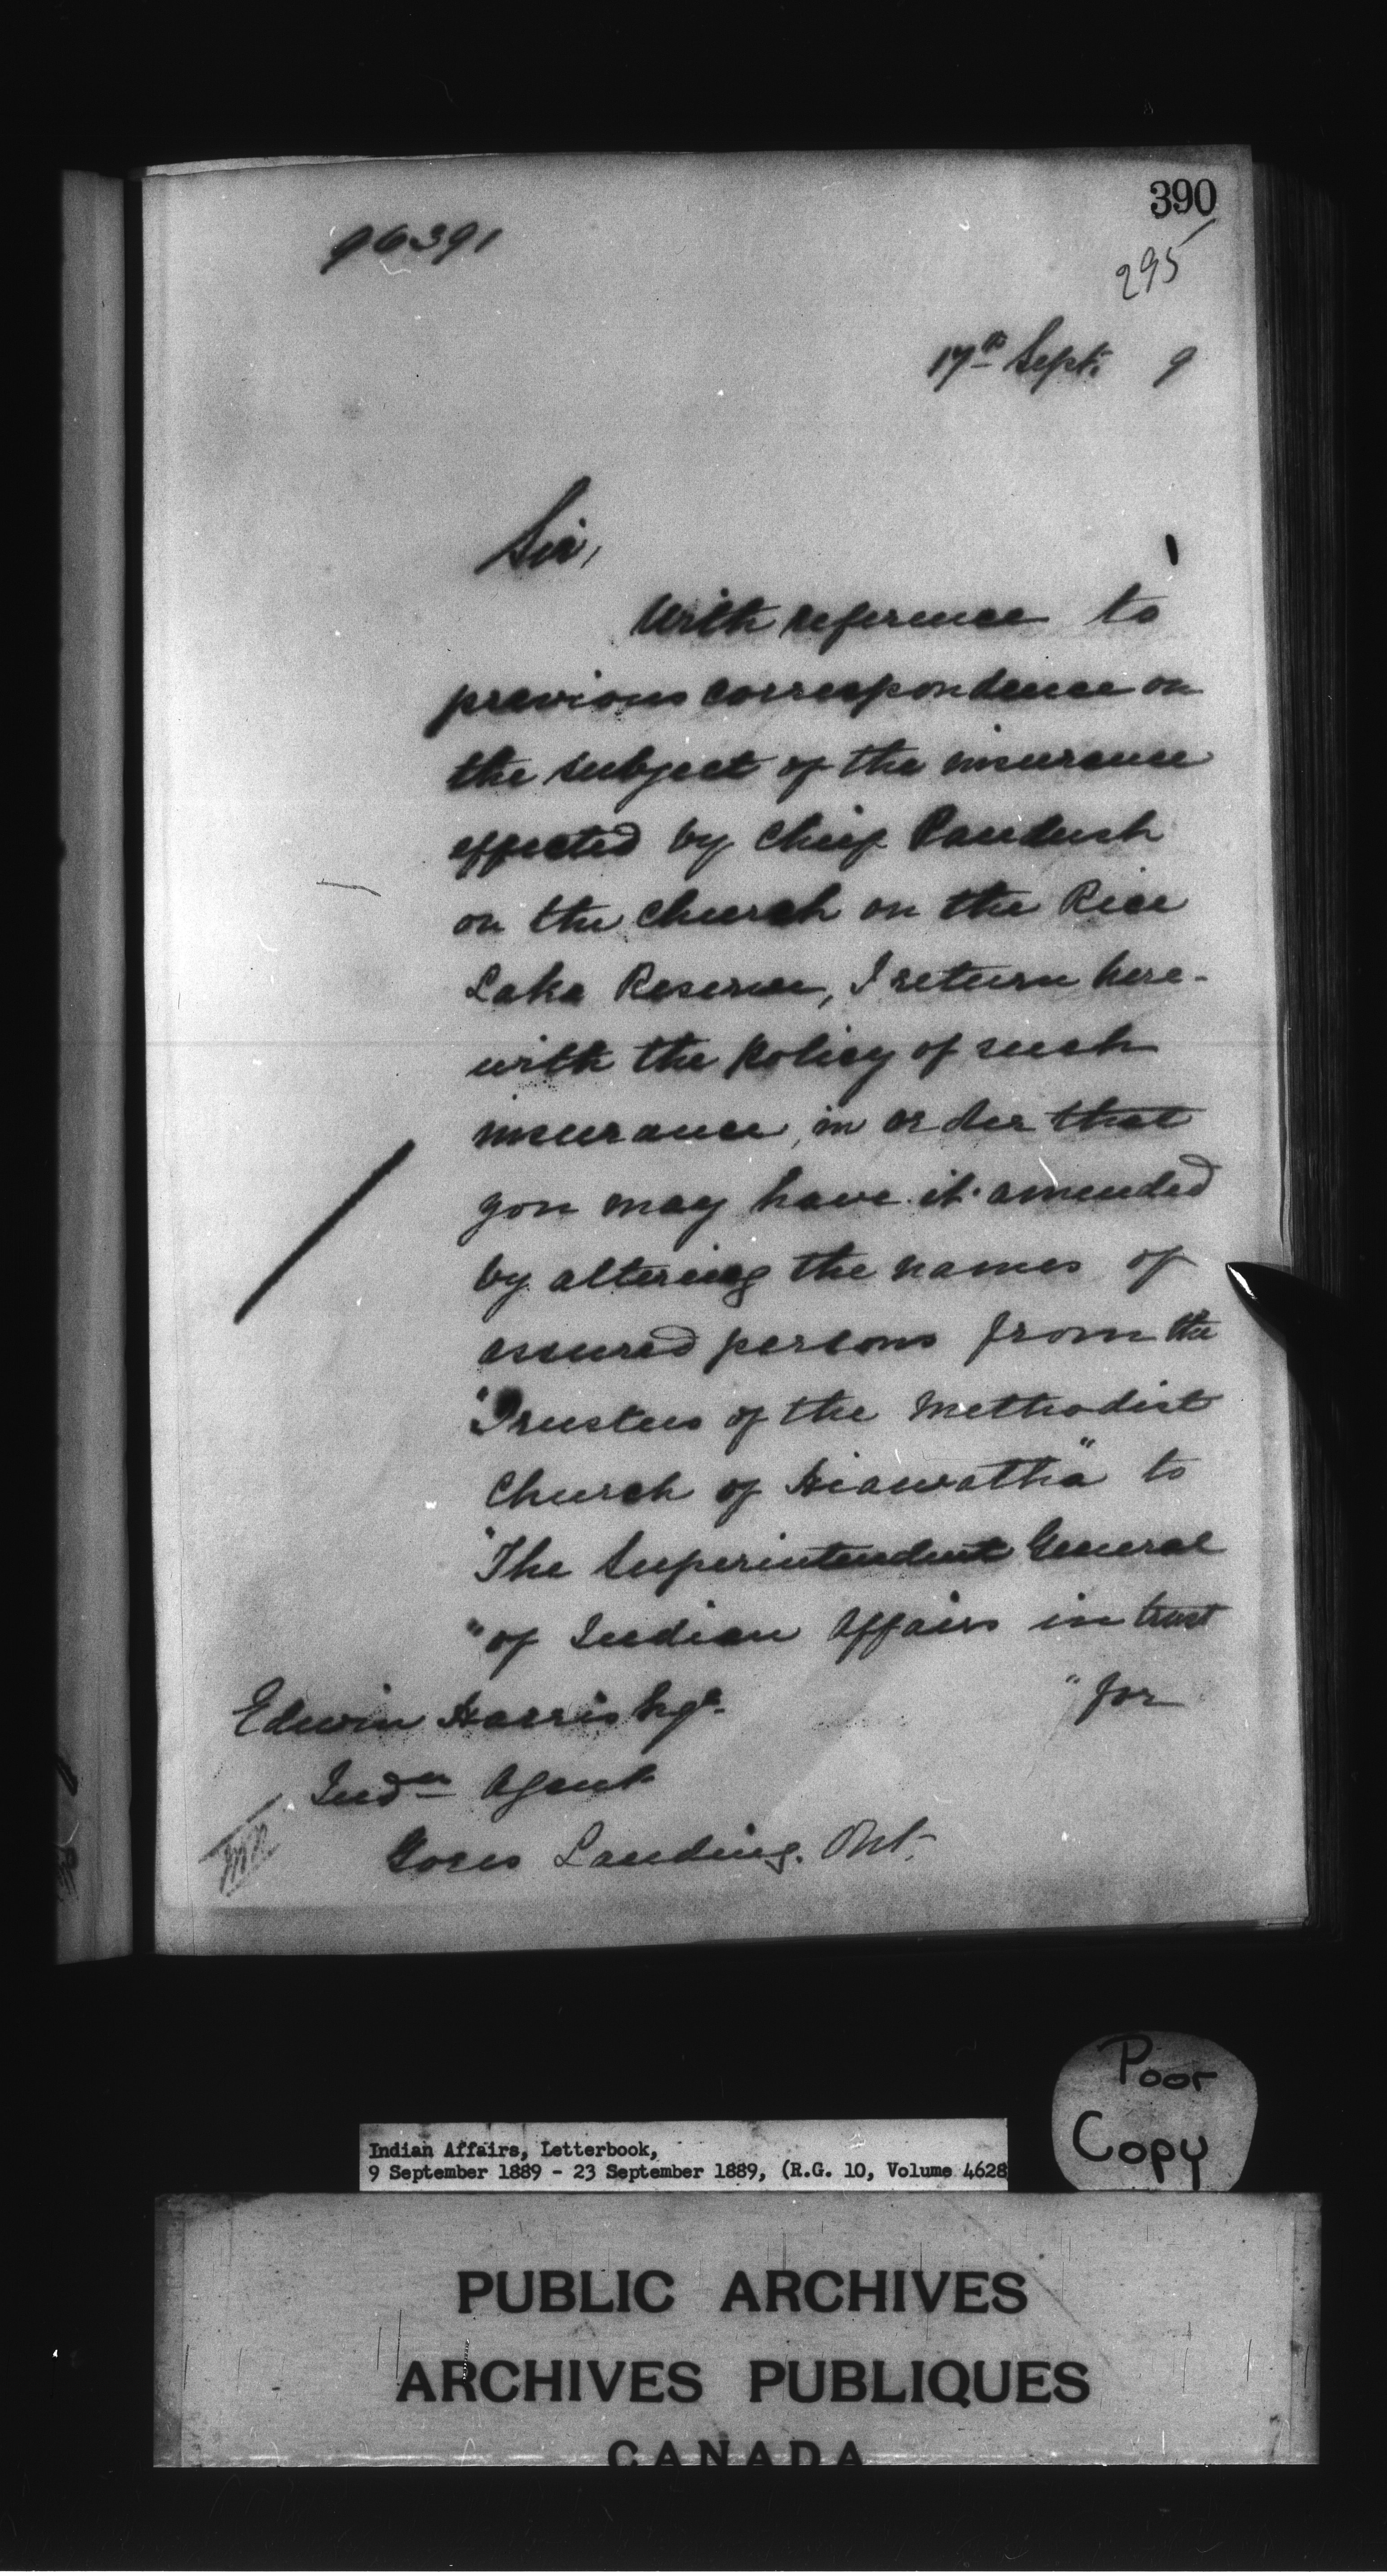 390
96391
295
17th Sept. 9
Sir,
With reference to
previous correspondence on
the subject of the insurance
effected by Chief Paudush
on the Church on the Rice
Lake Reserve, I return here-
with the Policy of such
insurance, in order that
you may have it amended
by altering the names of
assured persons from the
"Trustees of the Methodist
Church of Hiawatha" to
"The Superintendent General
"of Indian Affairs in trust
"for
Edwin Harris Esqr.
Indn Agent
Gores Landing. Ont.
Poor
Copy
Indian Affairs, Letterbook,
9 September 1889 - 23 September 1889, (R.G. 10, Volume 4628
PUBLIC ARCHIVES
ARCHIVES PUBLIQUES
CANADA